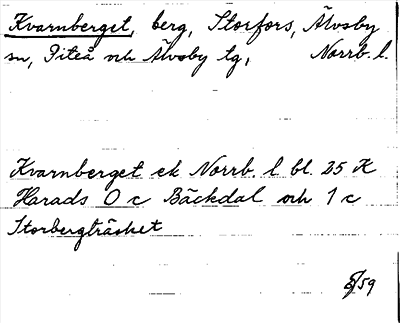 Kvarnberget, berg, Storfors, Älvsby
sn, Piteå och Älvsby tg, Norrb. l.
Kvarnberget ek Norrb. l bl. 25 K
Harads 0 c Bäckdal och 1 c
Storbergträsket
/59